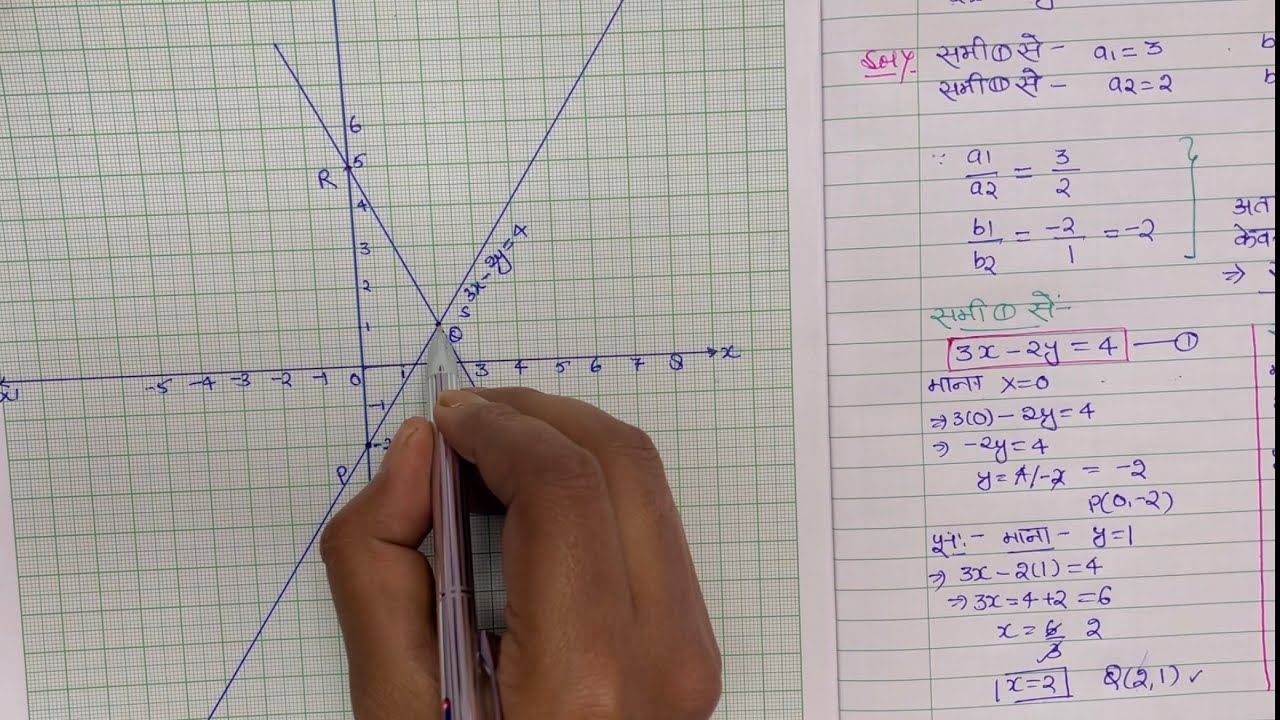 6
5
R
4
3
2
1
3x-2y=4
S
Q
-5 -4 -3 -2 -1 0 1 3 4 5 6 7 8 x
x1
-1
-2
P
Soln.
समी① से- a1=3 b
समी⑪ से- a2=2 b
∵ a1/a2 = 3/2
b1/b2 = -2/1 = -2
अत
केव
⇒
समी① से:-
3x-2y=4 —①
माना x=0
⇒3(0)-2y=4
⇒ -2y=4
y=4/-2 = -2
P(0,-2)
पुनः- माना- y=1
⇒ 3x-2(1)=4
⇒3x=4+2=6
x=6/3 2
x=2 Q(2,1) ✓